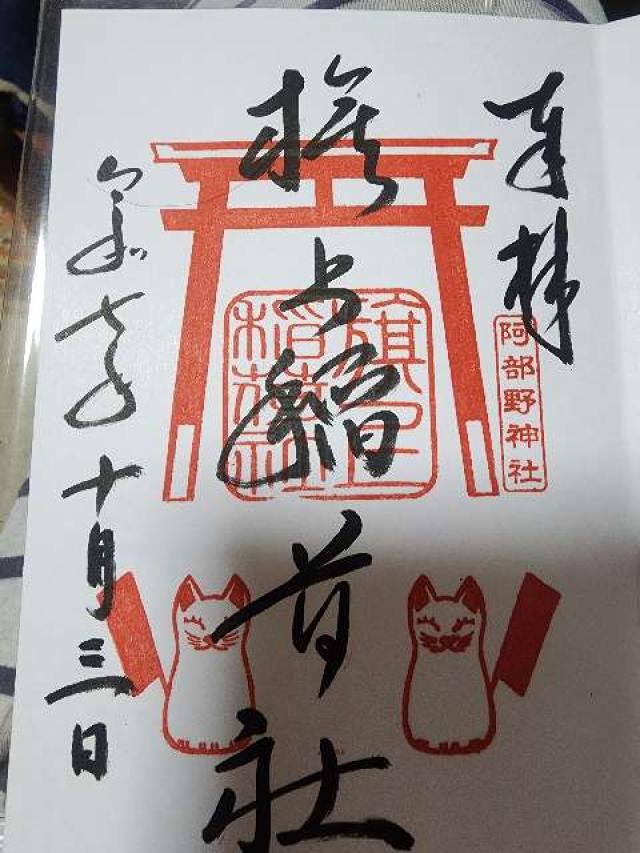 奉拝
阿部野神社
旗上稲荷社
旗上
稲荷社
令和七年十月三日